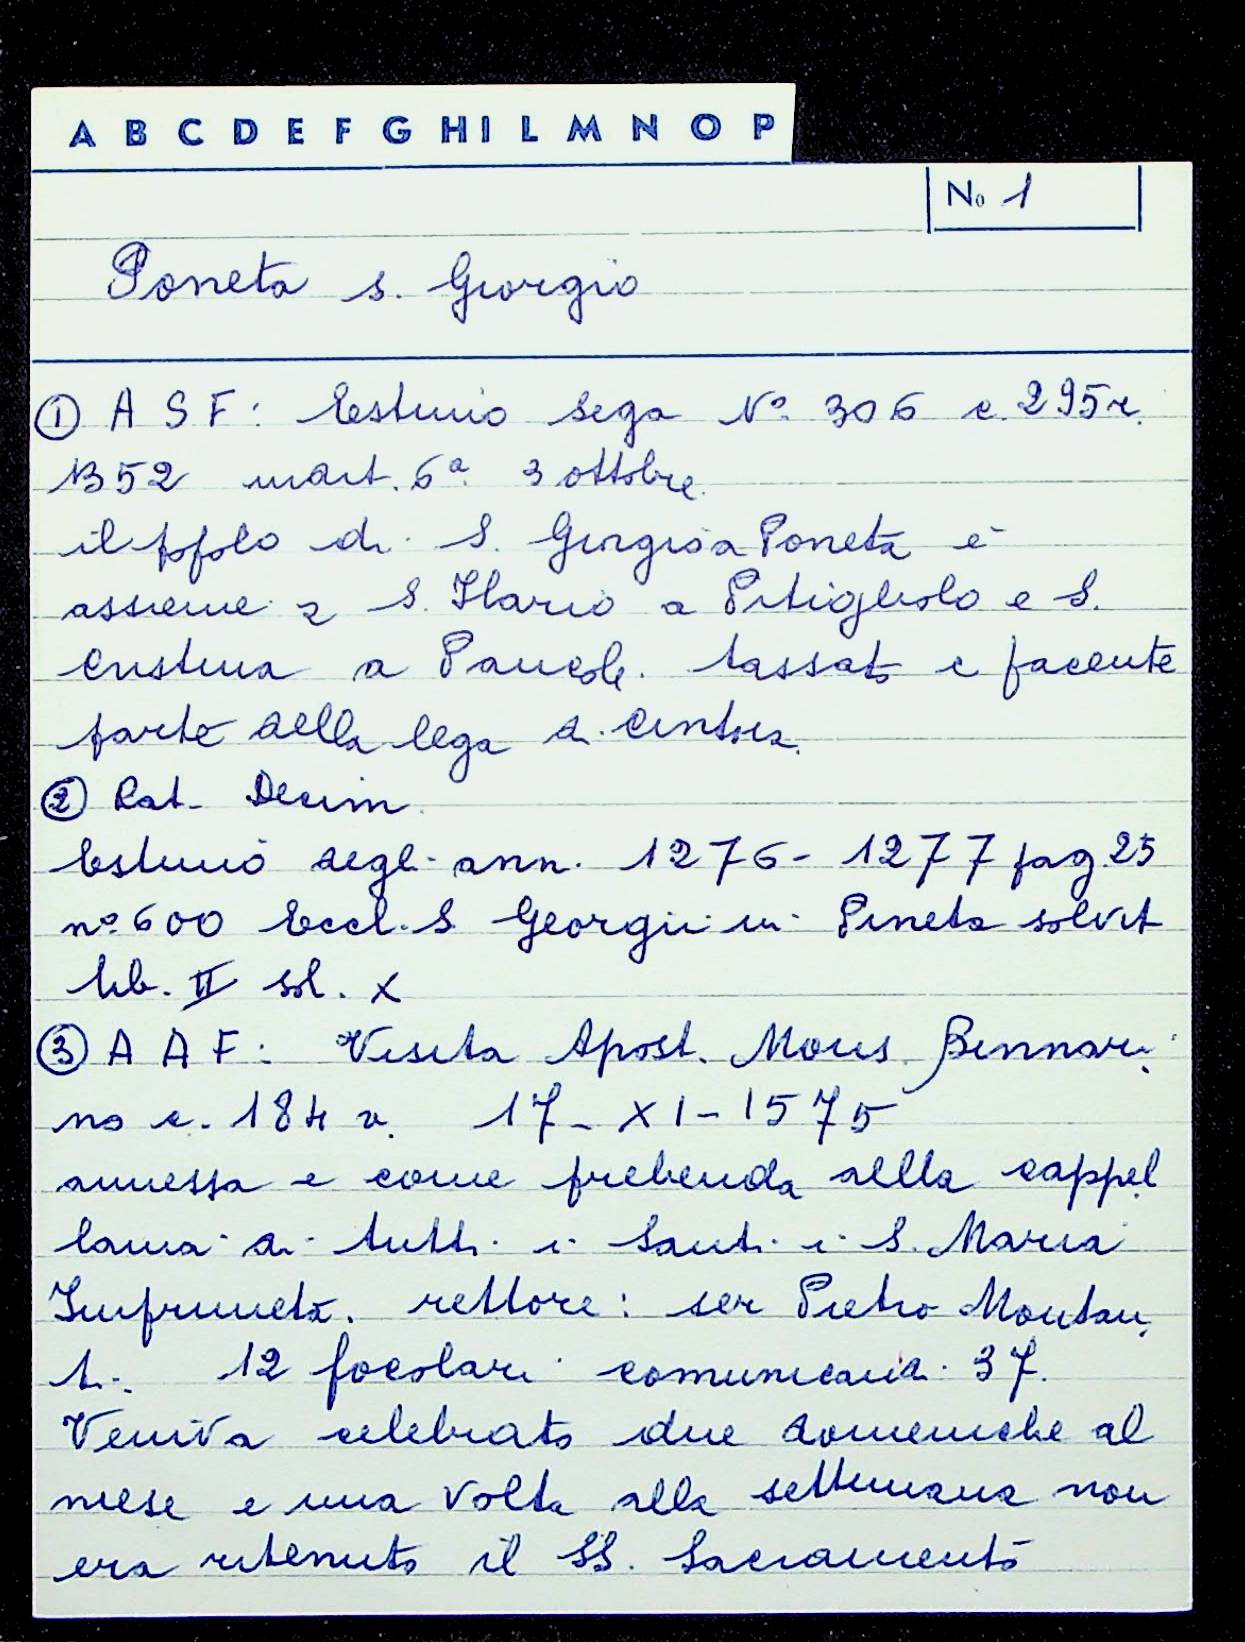 A B C D E F G H I L M N O P
No 1
Poneta s. Giorgio
① A S F: Estimo Sega Nº 306 c. 295r.
1352 mart. 6ª 3 ottobre.
il popolo di S. Giorgio a Poneta è
assieme a S. Ilario a Pitigliolo e S.
Cristina a Pancole. tassato e facente
parte della lega di Cintoia.
② Rat. Decim.
Estimo degli ann. 1276-1277 pag. 25
nº 600 Eccl. S. Georgii in Pineta solvit
lib. II sol. x
③ A A F: Visita Apost. Mons. Binnari
no c. 184 v. 17-XI-1575
annessa e come prebenda alla cappel
lania di tutti i Santi i S. Maria
Impruneta. rettore: ser Pietro Montan
ti. 12 focolari comunicandi 37.
Veniva celebrato due domeniche al
mese e una volta alla settimana non
era ritenuto il SS. Sacramento